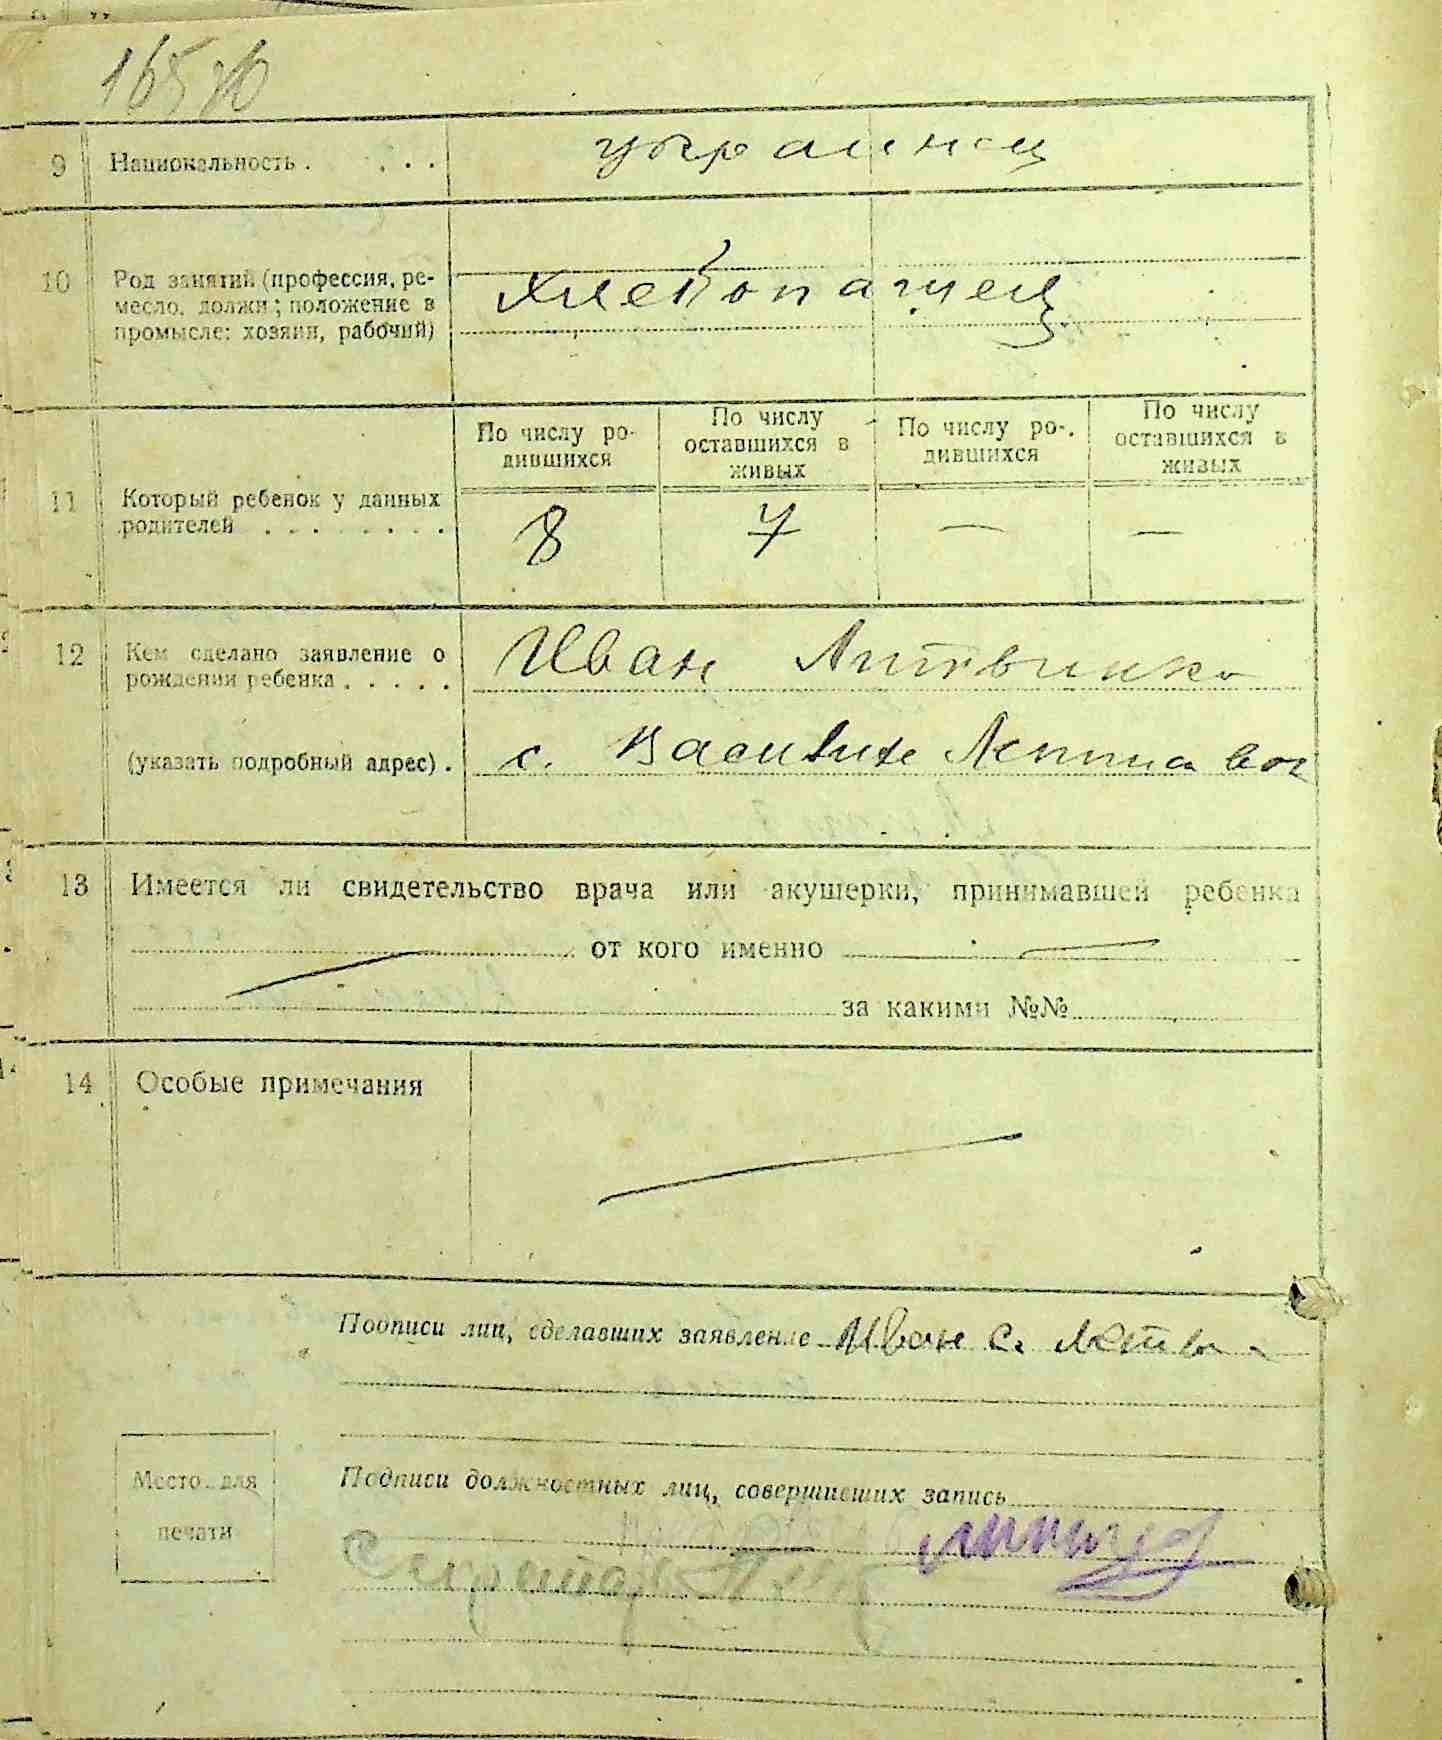 9 Национальность . . . . украинец
10 Род занятий (профессия, ре-
месло, должн; положение в
промысле: хозяин, рабочий)
хлебопашец
11 Который ребенок у данных
родителей . . . . . . . .
По числу ро-
дившихся
По числу
оставшихся в
живых
По числу ро-
дившихся
По числу
оставшихся в
живых
8 7 — —
12 Кем сделано заявление о
рождении ребенка . . . . .
Иван Литвинко
(указать подробный адрес) .
с.
13 Имеется ли свидетельство врача или акушерки, принимавшей ребенка
от кого именно —
за какими №№
14 Особые примечания
Подписи лиц, сделавших заявление Иван С.
Подписи должностных лиц, совершивших запись
Место для
печати
Секретарь